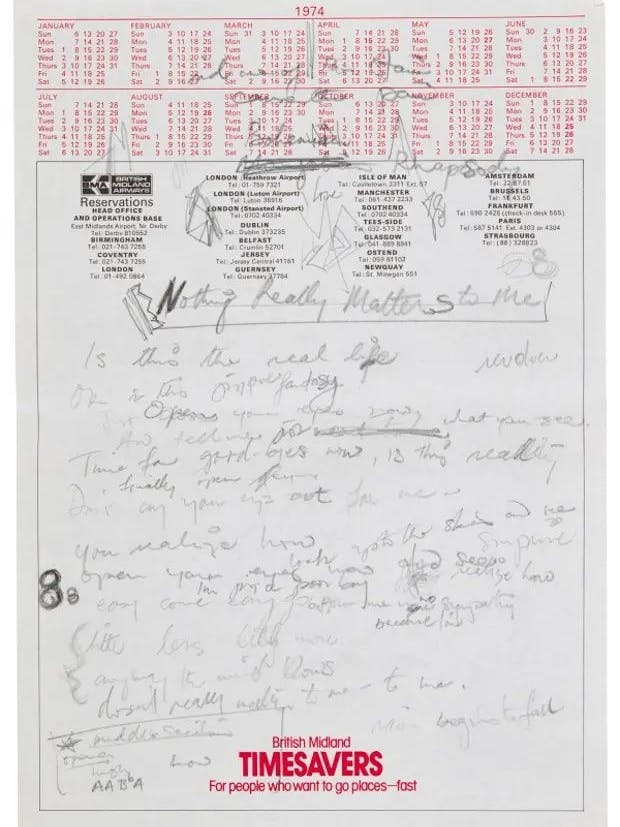 1974
JANUARY FEBRUARY MARCH APRIL MAY JUNE
Sun 6 13 20 27 Sun 3 10 17 24 Sun 31 3 10 17 24 Sun 7 14 21 28 Sun 5 12 19 26 Sun 30 2 9 16 23
Mon 7 14 21 28 Mon 4 11 18 25 Mon 4 11 18 25 Mon 1 8 15 22 29 Mon 6 13 20 27 Mon 3 10 17 24
Tues 1 8 15 22 29 Tues 5 12 19 26 Tues 5 12 19 26 Tues 2 9 16 23 30 Tues 7 14 21 28 Tues 4 11 18 25
Wed 2 9 16 23 30 Wed 6 13 20 27 Wed 6 13 20 27 Wed 3 10 17 24 Wed 1 8 15 22 29 Wed 5 12 19 26
Thurs 3 10 17 24 31 Thurs 7 14 21 28 Thurs 7 14 21 28 Thurs 4 11 18 25 Thurs 2 9 16 23 30 Thurs 6 13 20 27
Fri 4 11 18 25 Fri 1 8 15 22 Fri 1 8 15 22 29 Fri 5 12 19 26 Fri 3 10 17 24 31 Fri 7 14 21 28
Sat 5 12 19 26 Sat 2 9 16 23 Sat 2 9 16 23 30 Sat 6 13 20 27 Sat 4 11 18 25 Sat 1 8 15 22 29
JULY AUGUST SEPTEMBER OCTOBER NOVEMBER DECEMBER
Sun 7 14 21 28 Sun 4 11 18 25 Sun 1 8 15 22 29 Sun 6 13 20 27 Sun 3 10 17 24 Sun 1 8 15 22 29
Mon 1 8 15 22 29 Mon 5 12 19 26 Mon 2 9 16 23 30 Mon 7 14 21 28 Mon 4 11 18 25 Mon 2 9 16 23 30
Tues 2 9 16 23 30 Tues 6 13 20 27 Tues 3 10 17 24 Tues 1 8 15 22 29 Tues 5 12 19 26 Tues 3 10 17 24 31
Wed 3 10 17 24 31 Wed 7 14 21 28 Wed 4 11 18 25 Wed 2 9 16 23 30 Wed 6 13 20 27 Wed 4 11 18 25
Thurs 4 11 18 25 Thurs 1 8 15 22 29 Thurs 5 12 19 26 Thurs 3 10 17 24 31 Thurs 7 14 21 28 Thurs 5 12 19 26
Fri 5 12 19 26 Fri 2 9 16 23 30 Fri 6 13 20 27 Fri 4 11 18 25 Fri 1 8 15 22 29 Fri 6 13 20 27
Sat 6 13 20 27 Sat 3 10 17 24 31 Sat 7 14 21 28 Sat 5 12 19 26 Sat 2 9 16 23 30 Sat 7 14 21 28
Rhapsody
BMA BRITISH MIDLAND AIRWAYS
Reservations
HEAD OFFICE
AND OPERATIONS BASE
East Midlands Airport, Nr. Derby
Tel: Derby 810552
BIRMINGHAM
Tel: 021-743 7255
COVENTRY
Tel: 021-743 7255
LONDON
Tel: 01-492 0864
LONDON (Heathrow Airport)
Tel: 01-759 7321
LONDON (Luton Airport)
Tel: Luton 36916
LONDON (Stansted Airport)
Tel: 0702 40334
DUBLIN
Tel: Dublin 373235
BELFAST
Tel: Crumlin 52701
JERSEY
Tel: Jersey Central 41161
GUERNSEY
Tel: Guernsey 37784
love
ISLE OF MAN
Tel: Castletown 3311 Ext. 57
MANCHESTER
Tel: 061-437 2233
SOUTHEND
Tel: 0702 40334
TEES-SIDE
Tel: 032-573 2131
GLASGOW
Tel: 041-889 6941
OSTEND
Tel: 059 81102
NEWQUAY
Tel: St. Mawgan 551
AMSTERDAM
Tel: 22.67.61
BRUSSELS
Tel: 18.43.60
FRANKFURT
Tel: 690 2428 (check-in desk 555)
PARIS
Tel: 587 5141 Ext. 4303 or 4304
STRASBOURG
Tel: (88) 328823
Nothing Really Matters to Me
Is this the real life
Or is this fantasy
Open your eyes what you see
And tell me
Time for good-byes now, is this reality
finally open
Don't cry your eyes out for me
You realize how
look up to the skies and see
open your eyes surprise
I'm just a poor boy realize how
easy come easy go sympathy
because I'm
88
little less little more
anyway the wind blows
doesn't really matter to me - to me.
middle section
opera
high now
AABA
begins to fall
British Midland
TIMESAVERS
For people who want to go places—fast